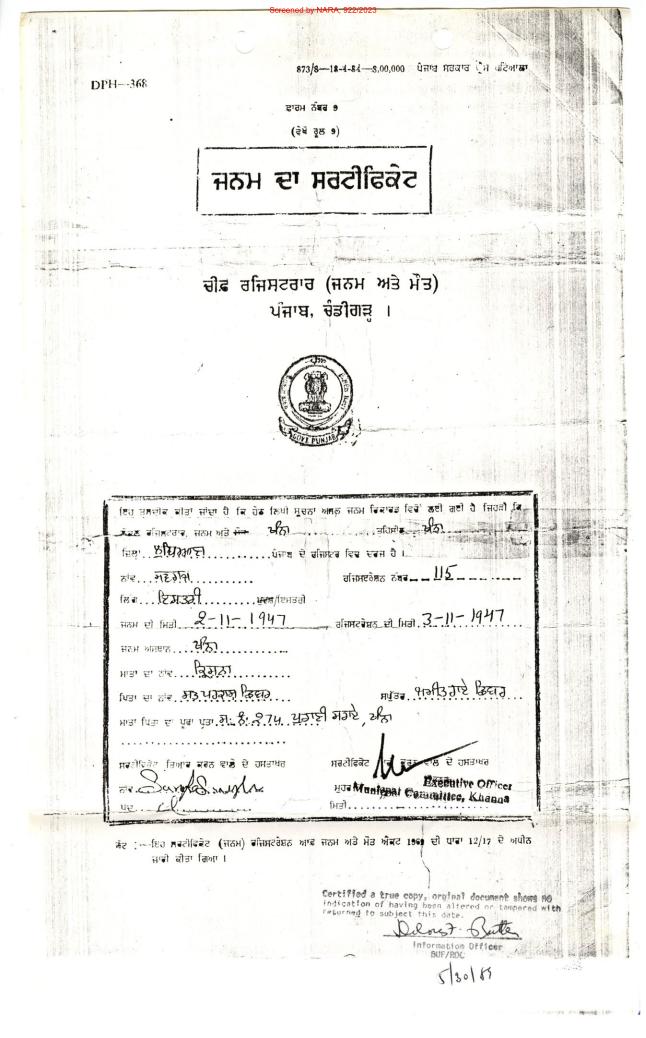 Screened by NARA, 9/22/2023
873/8—18-4-84—8,00,000 ਪੰਜਾਬ ਸਰਕਾਰ ਪ੍ਰੈਸ ਪਟਿਆਲਾ
DPH—368
ਫਾਰਮ ਨੰਬਰ ੭
(ਵੇਖੋ ਰੂਲ ੭)
ਜਨਮ ਦਾ ਸਰਟੀਫਿਕੇਟ
ਚੀਫ਼ ਰਜਿਸਟਰਾਰ (ਜਨਮ ਅਤੇ ਮੌਤ)
ਪੰਜਾਬ, ਚੰਡੀਗੜ੍ਹ ।
GOVT PUNJAB
ਇਹ ਤਸਦੀਕ ਕੀਤਾ ਜਾਂਦਾ ਹੈ ਕਿ ਹੇਠ ਲਿਖੀ ਸੂਚਨਾ ਅਸਲ ਜਨਮ ਰਿਕਾਰਡ ਵਿਚੋਂ ਲਈ ਗਈ ਹੈ ਜਿਹੜੀ ਕਿ
ਲੋਕਲ ਰਜਿਸਟਰਾਰ, ਜਨਮ ਅਤੇ ਮੌਤ ਖੰਨਾ ਤਹਿਸੀਲ ਖੰਨਾ
ਜ਼ਿਲ੍ਹਾ ਲੁਧਿਆਣਾ ਪੰਜਾਬ ਦੇ ਰਜਿਸਟਰ ਵਿਚ ਦਰਜ ਹੈ ।
ਨਾਂਵ ਰਜਿਸਟਰੇਸ਼ਨ ਨੰਬਰ 115
ਲਿੰਗ ਇਸਤਰੀ ਪੁਰਸ਼/ਇਸਤਰੀ
ਜਨਮ ਦੀ ਮਿਤੀ 2-11-1947 ਰਜਿਸਟਰੇਸ਼ਨ ਦੀ ਮਿਤੀ 3-11-1947
ਜਨਮ ਅਸਥਾਨ ਖੰਨਾ
ਮਾਤਾ ਦਾ ਨਾਂਵ ਕ੍ਰਿਸ਼ਨਾ
ਪਿਤਾ ਦਾ ਨਾਂਵ ਸਤ ਪਰਕਾਸ਼ ਛਿਬਰ ਸਪੁੱਤਰ ਅਜੀਤ ਰਾਏ ਛਿਬਰ
ਮਾਤਾ ਪਿਤਾ ਦਾ ਪੂਰਾ ਪਤਾ ਮ. ਨੰ. 274 ਪੁਰਾਣੀ ਸਰਾਏ, ਖੰਨਾ
ਸਰਟੀਫਿਕੇਟ ਤਿਆਰ ਕਰਨ ਵਾਲੇ ਦੇ ਹਸਤਾਖਰ ਸਰਟੀਫਿਕੇਟ ਕਰਨ ਵਾਲੇ ਦੇ ਹਸਤਾਖਰ
ਨਾਂਵ ਮੁਹਰ Executive Officer
Municipal Committee, Khanna
ਪਦ ਮਿਤੀ
ਨੋਟ :—ਇਹ ਸਰਟੀਫਿਕੇਟ (ਜਨਮ) ਰਜਿਸਟਰੇਸ਼ਨ ਆਫ਼ ਜਨਮ ਅਤੇ ਮੌਤ ਐਕਟ 1969 ਦੀ ਧਾਰਾ 12/17 ਦੇ ਅਧੀਨ
ਜਾਰੀ ਕੀਤਾ ਗਿਆ ।
Certified a true copy, orginal document shows NO
indication of having been altered or tampered with
returned to subject this date.
Information Officer
BUF/ROC
5/30/89